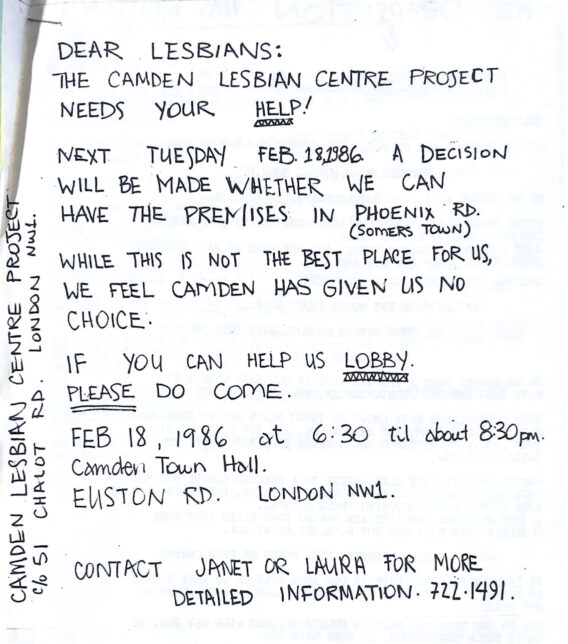 DEAR LESBIANS:
THE CAMDEN LESBIAN CENTRE PROJECT
NEEDS YOUR HELP!
NEXT TUESDAY FEB. 18,1986. A DECISION
WILL BE MADE WHETHER WE CAN
HAVE THE PREMISES IN PHOENIX RD.
(SOMERS TOWN)
WHILE THIS IS NOT THE BEST PLACE FOR US,
WE FEEL CAMDEN HAS GIVEN US NO
CHOICE.
IF YOU CAN HELP US LOBBY.
PLEASE DO COME.
FEB 18, 1986 at 6:30 til about 8:30pm.
Camden Town Hall.
EUSTON RD. LONDON NW1.
CONTACT JANET OR LAURA FOR MORE
DETAILED INFORMATION. 722.1491.
CAMDEN LESBIAN CENTRE PROJECT
c/o 51 CHALOT RD. LONDON NW1.